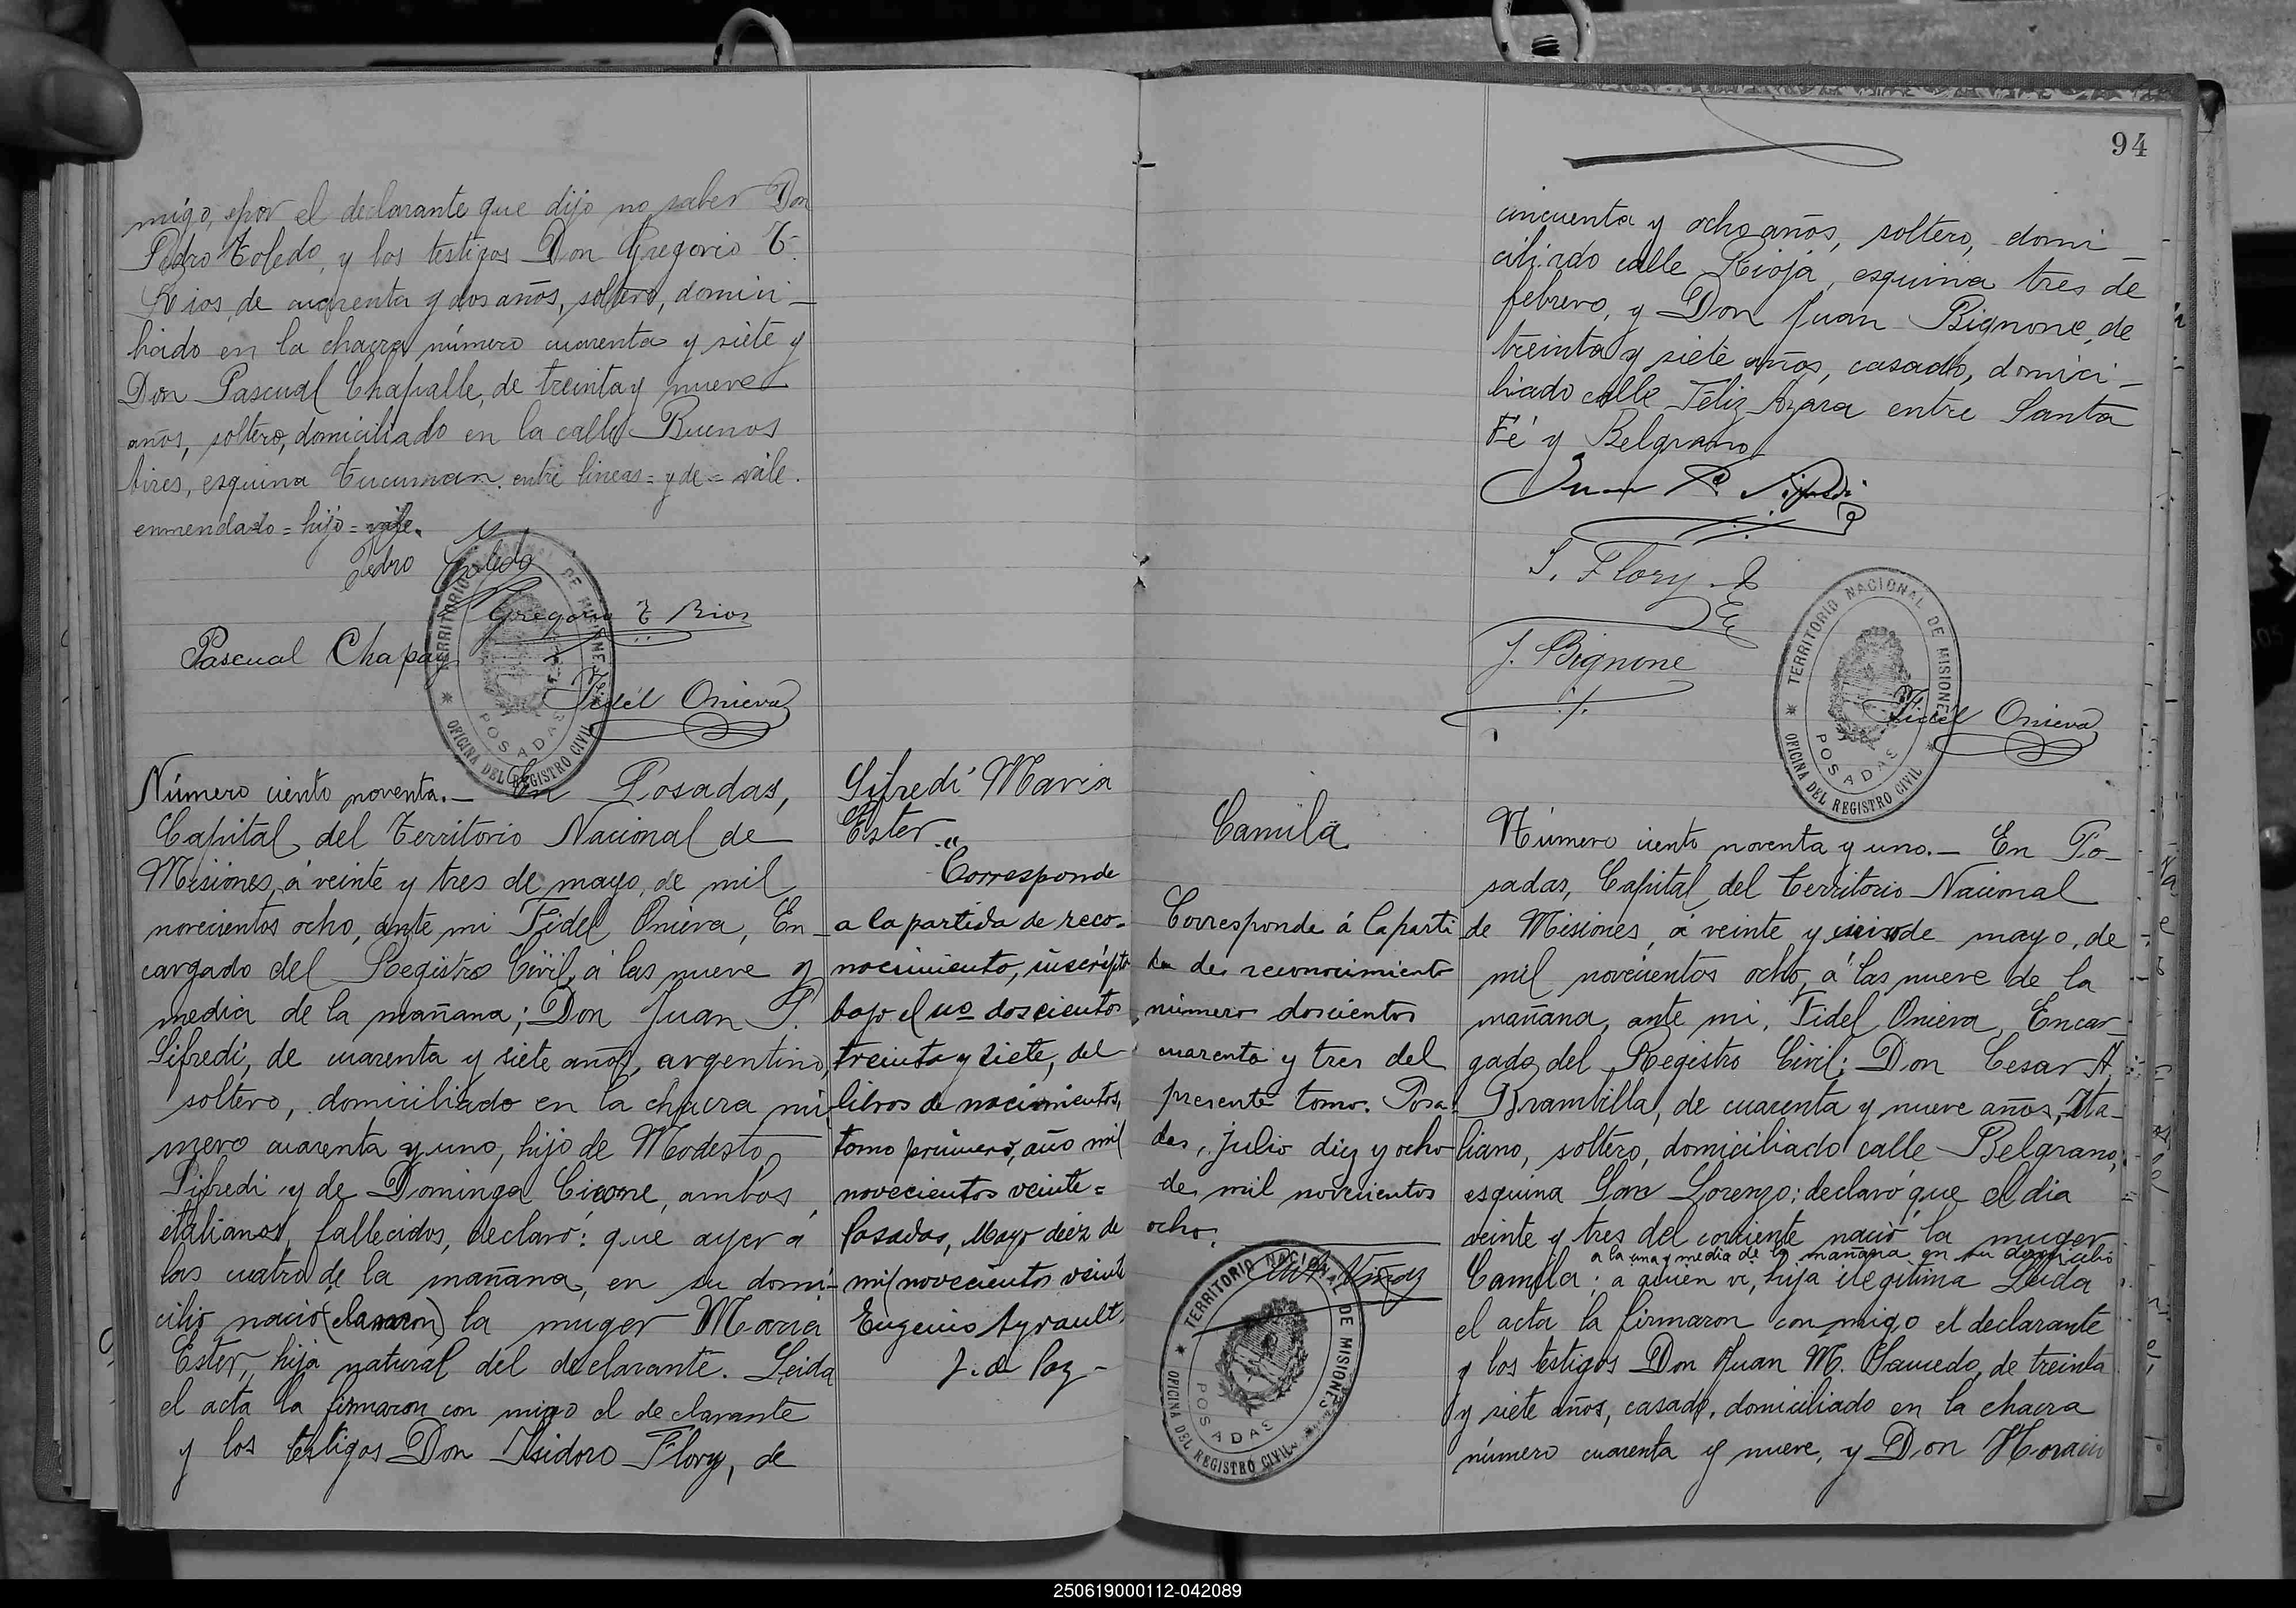 migo, y por el declarante que dijo no saber Don
Pedro Toledo, y los testigos Don Gregorio T.
Rios, de cuarenta y dos años, soltero, domici-
liado en la chacra número cuarenta y siete y
Don Pascual Chapalle, de treinta y nueve
años, soltero, domiciliado en la calle Buenos
Aires, esquina Tucuman. entre lineas = y de = vale.
enmendado = hijo = vale.
Pedro Toledo
Gregorio T Rios
Pascual Chapay
Fidel Onieva
TERRITORIO NACIONAL DE MISIONES
OFICINA DEL REGISTRO CIVIL
POSADAS
Número ciento noventa.- En Posadas,
Capital del Territorio Nacional de
Misiones, á veinte y tres de mayo, de mil
novecientos ocho, ante mi Fidel Onieva, En-
cargado del Registro Civil, á las nueve y
media de la mañana; Don Juan P.
Sifredi, de cuarenta y siete años, argentino,
soltero, domiciliado en la chacra nú-
mero cuarenta y uno, hijo de Modesto
Sifredi y de Dominga Cicone, ambos
italianos, fallecidos, declaró: que ayer á
las cuatro de la mañana, en su domi-
cilio nació la muger Maria
Ester, hija natural del declarante. Leida
el acta la firmaron con migo el declarante
y los testigos Don Isidoro Flory, de
Sifredi Maria
Ester "
Corresponde
a la partida de reco-
nocimiento, inscripta
bajo el no doscientos
treinta y siete, del
libros de nacimientos,
tomo primero, año mil
novecientos veinte =
Posadas, Mayo diez de
mil novecientos veinte
Eugenio Ayrault,
J. de Paz -
94
cincuenta y ocho años, soltero, domi-
ciliado calle Rioja, esquina tres de
febrero, y Don Juan Bignone, de
treinta y siete años, casado, domici-
liado calle Feliz Azara entre Santa
Fé y Belgrano
Juan P. Sifredi
I. Flory
J. Bignone
Fidel Onieva
TERRITORIO NACIONAL DE MISIONES
OFICINA DEL REGISTRO CIVIL
POSADAS
Camila
Corresponde á la parti
da de reconocimiento
número doscientos
cuarenta y tres del
presente tomo. Posa-
das, julio diez y ocho
de mil novecientos
ocho.
TERRITORIO NACIONAL DE MISIONES
OFICINA DEL REGISTRO CIVIL
POSADAS
Número ciento noventa y uno.- En Po-
sadas, Capital del Territorio Nacional
de Misiones, á veinte y cinco de mayo, de
mil novecientos ocho, á las nueve de la
mañana, ante mi, Fidel Onieva, Encar-
gado del Registro Civil: Don Cesar A.
Brambilla, de cuarenta y nueve años, Ita-
liano, soltero, domiciliado calle Belgrano,
esquina San Lorenzo; declaró que el dia
veinte y tres del corriente nació la muger
a la una y media de la mañana en su domicilio
Camila; a quien vi, hija ilegitima Leida
el acta la firmaron con migo el declarante
y los testigos Don Juan M. , de treinta
y siete años, casado, domiciliado en la chacra
número cuarenta y nueve, y Don Horacio
250619000112-042089